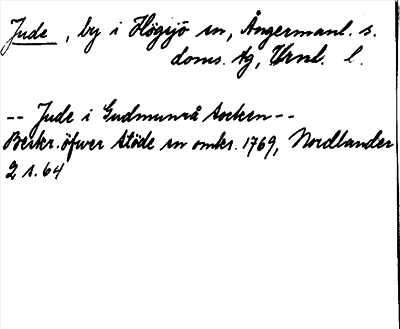 Jude, by i Högsjö sn, Ångermanl. s.
doms. tg, Vrnl. l.
-- Jude i Gudmunrå Socken --
Beskr. öfwer Stöde sn omkr. 1769, Nordlander
2 s. 64